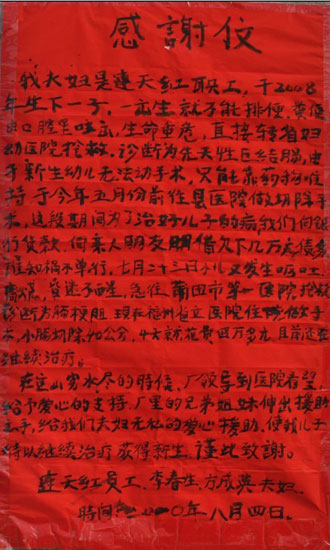 感謝仪
我夫妇是連天红职工，于2008
年生下一子，一出生就不能排便，粪便
由口腔里吐出，生命垂危，直接转省妇
幼医院抢救，诊断为先天性巨结腸，由
于新生幼儿无法动手术，只能靠药物维
持于今年五月份前往县医院做切除手
术，这段期间为了治好儿子的病我们向银
行贷款、向亲人朋友朋借欠下几万元债务
祸不单行，七月二十三日小儿又发生呕吐
高烧，昏迷不醒，急往莆田市第一医院抢救
诊断为腸梗阻 现在福州省立医院住院做手
术，小腸切除40公分，4天就花费四万多元，且前还要
继续治疗。
在这山穷水尽的時候，厂领导到医院看望，
给予爱心的支持，厂里的兄弟姐妹伸出援助
之手，给我们夫妇无私的爱心援助，使我儿子
得以继续治疗 获得新生，謹此致謝。
連天红员工、李春生、方成英夫妇、
時间 二〇一〇年八月四日。